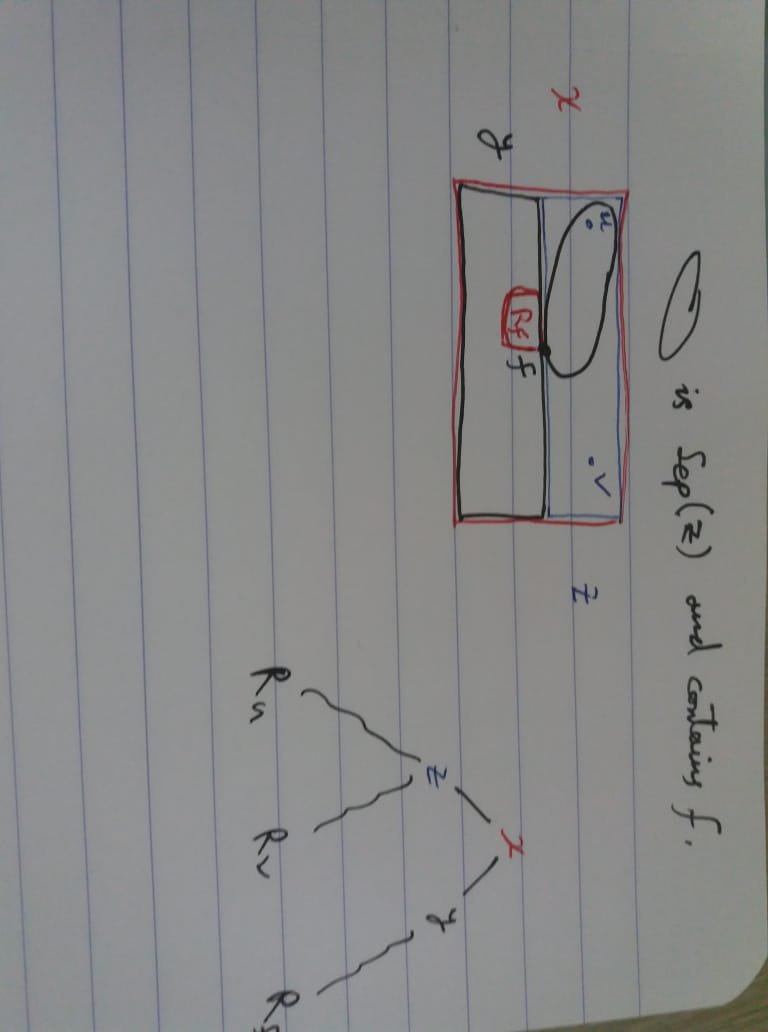 is Sep(z) and contains f.
u
v
x
z
Rf f
y
x
z y
Ru Rv